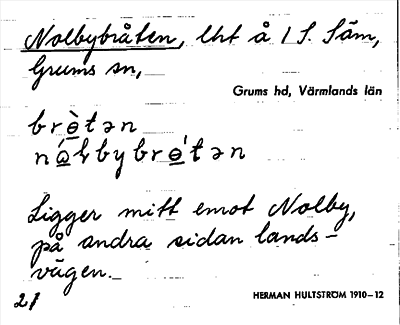 Nolbybråten, lht å 1 S. Säm,
Grums sn,
Grums hd, Värmlands län
brètən
nó̲lbybró̲tən
Ligger mitt emot Nolby,
på andra sidan lands-
vägen.
HERMAN HULTSTRÖM 1910-12